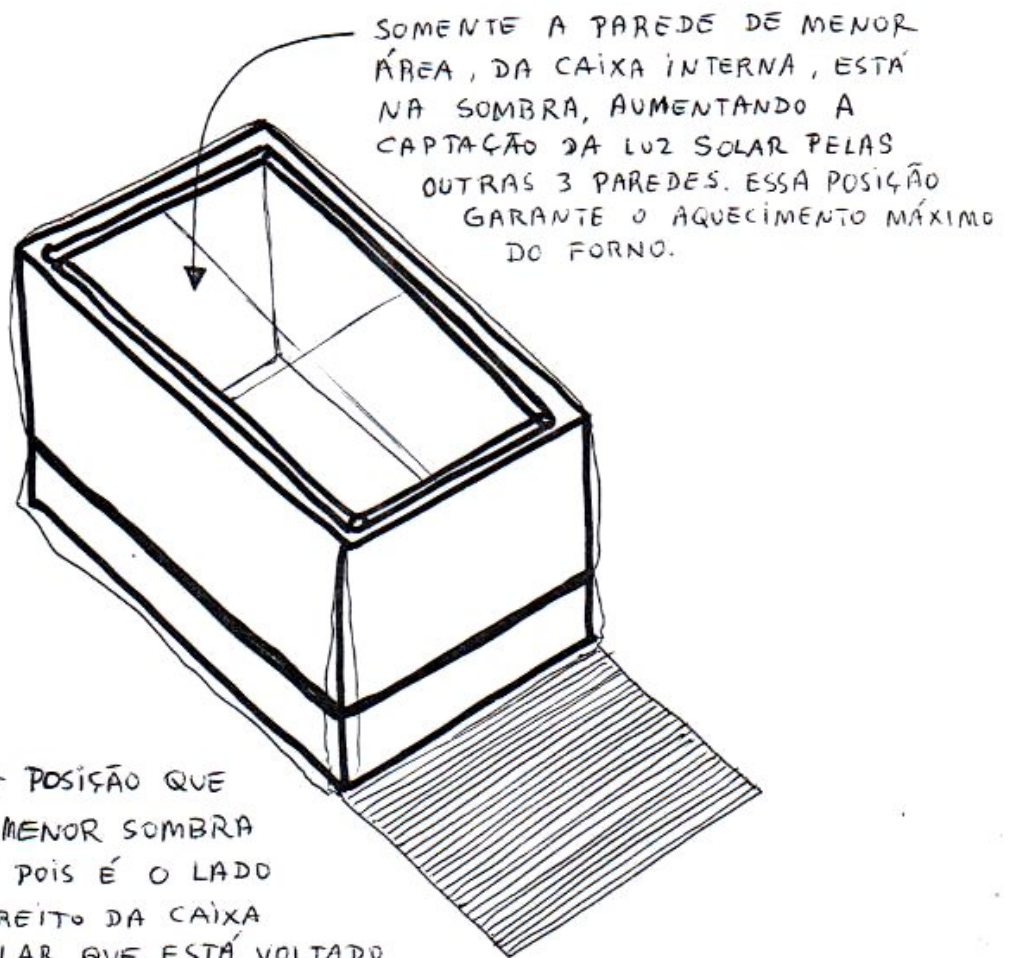 SOMENTE A PAREDE DE MENOR
ÁREA, DA CAIXA INTERNA, ESTÁ
NA SOMBRA, AUMENTANDO A
CAPTAÇÃO DA LUZ SOLAR PELAS
OUTRAS 3 PAREDES. ESSA POSIÇÃO
GARANTE O AQUECIMENTO MÁXIMO
DO FORNO.
POSIÇÃO QUE
MENOR SOMBRA
POIS É O LADO
REITO DA CAIXA
LAR QUE ESTÁ VOLTADO